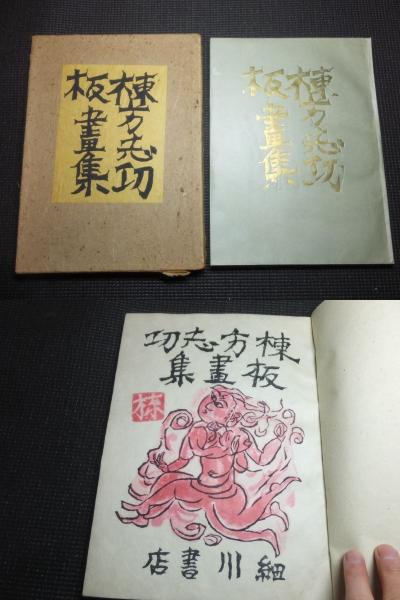 棟方志功
板畫集
棟方志功
板畫集
棟方志功
板畫集
棟
細川書店